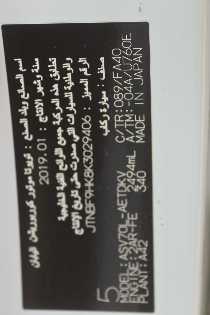 اسم الصانع وبلد الصنع : تويوتا موتور كوربوريشن اليابان
سنة وشهر الانتاج : 2019. 01
تطابق هذه المركبة جميع اللوائح الفنية الخليجية
والوطنية للسيارات التي صدرت حتى تاريخ الإنتاج
الرقم المميز : JTNBF9HK8K3029406
صنف : سيارة ركاب
C/TR:089/FA40
A/TM:-04A/U760E
MADE IN JAPAN
5
MODEL:ASV70L-AETDKV
ENGINE:2AR-FE 2494mL
PLANT:A42 340